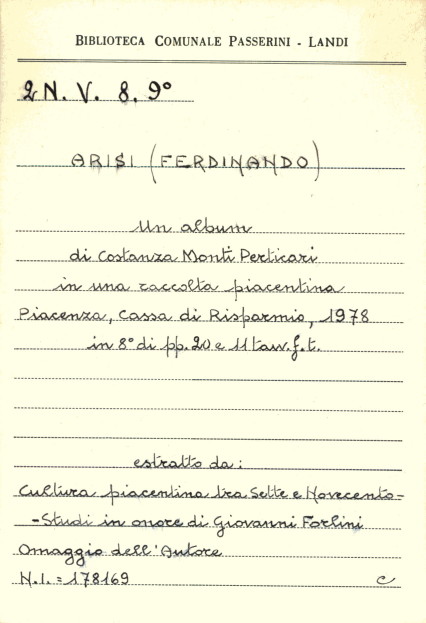 BIBLIOTECA COMUNALE PASSERINI - LANDI
2 N. V. 8. 9°
ARISI (FERDINANDO)
Un album
di Costanza Monti Perticari
in una raccolta piacentina
Piacenza, Cassa di Risparmio, 1978
in 8° di pp. 20 e 11 tav. f. t.
estratto da:
Cultura piacentina tra Sette e Novecento-
-Studi in onore di Giovanni Forlini
Omaggio dell'Autore
N.I. = 178169 C